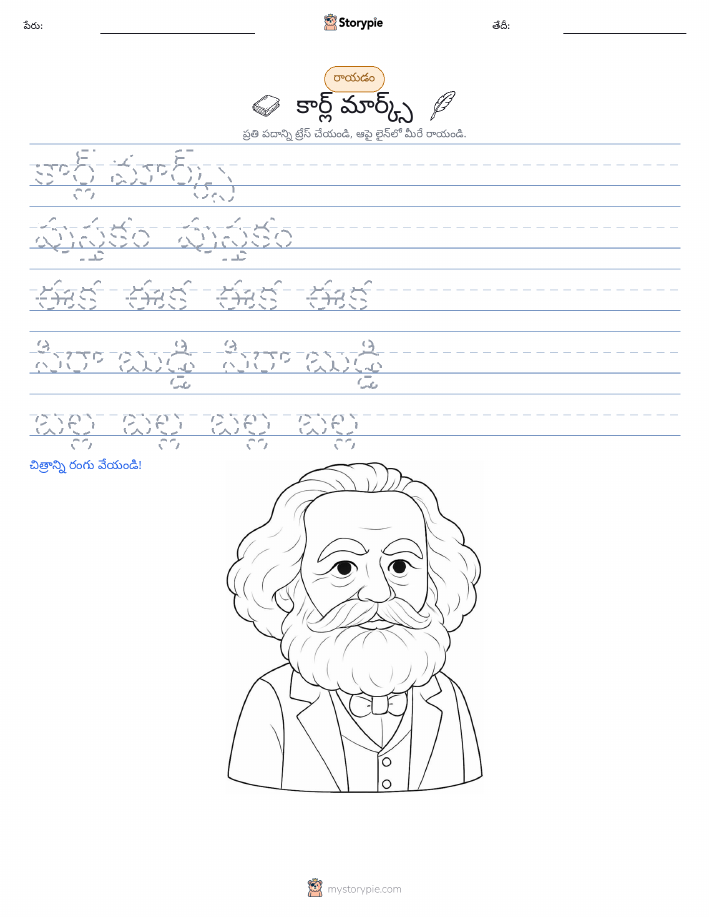 పేరు:
Storypie
తేదీ:
రాయడం
కార్ల్ మార్క్స్
ప్రతి పదాన్ని ట్రేస్ చేయండి, ఆపై లైన్‌లో మీరే రాయండి.
కార్ల్ మార్క్స్
పుస్తకం పుస్తకం
ఈక ఈక ఈక ఈక
సిరా బుడ్డి సిరా బుడ్డి
బల్ల బల్ల బల్ల బల్ల
చిత్రాన్ని రంగు వేయండి!
mystorypie.com